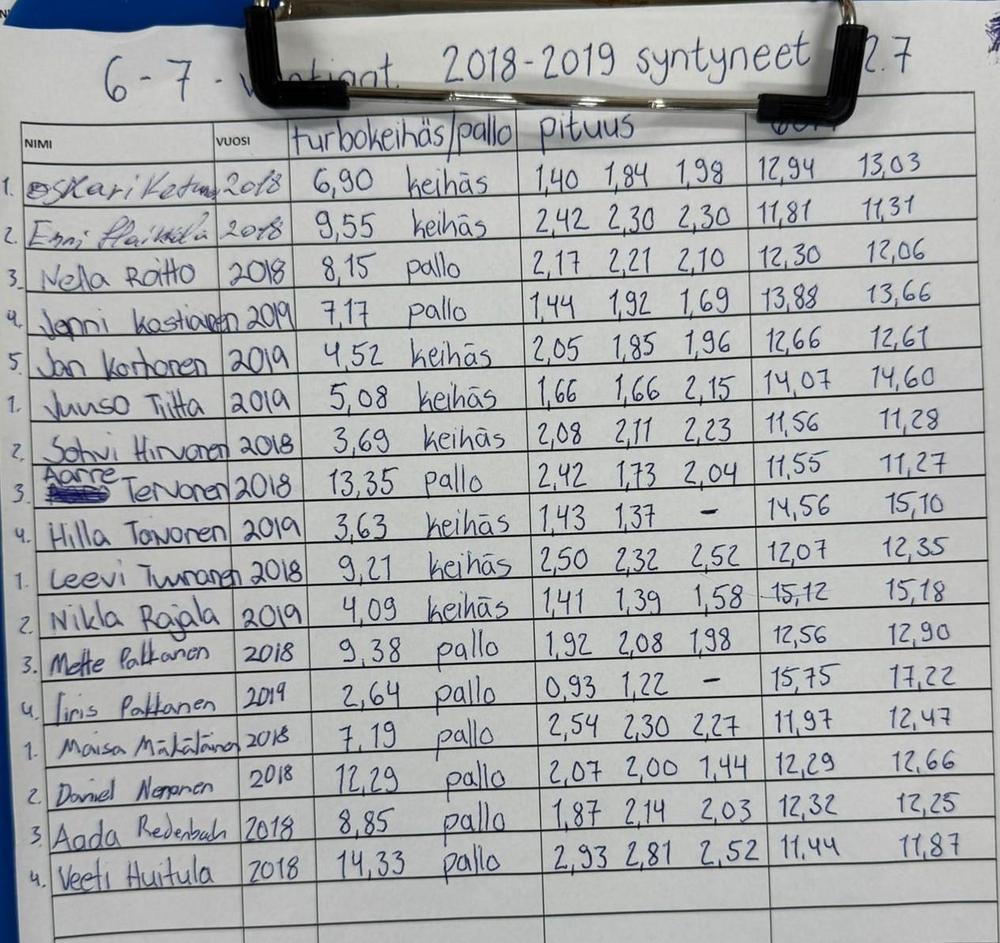 6-7- 2018-2019 syntyneet 2.7
NIMI VUOSI turbokeihäs/pallo pituus
1. Oskari 2018 6,90 keihäs 1,40 1,84 1,98 12,94 13,03
2. Enni 2018 9,55 keihäs 2,42 2,30 2,30 11,81 11,31
3. Nella Raitto 2018 8,15 pallo 2,17 2,21 2,10 12,30 12,06
4. Jenni Kostiainen 2019 7,17 pallo 1,44 1,92 1,69 13,88 13,66
5. Jan Korhonen 2019 4,52 keihäs 2,05 1,85 1,96 12,66 12,61
1. Juuso Tiitta 2019 5,08 keihäs 1,66 1,66 2,15 14,07 14,60
2. Sohvi Hirvonen 2018 3,69 keihäs 2,08 2,11 2,23 11,56 11,28
3. Aarre Tervonen 2018 13,35 pallo 2,42 1,73 2,04 11,55 11,27
4. Hilla Toivonen 2019 3,63 keihäs 1,43 1,37 - 14,56 15,10
1. Leevi Tuunanen 2018 9,21 keihäs 2,50 2,32 2,52 12,07 12,35
2. Nikla Rajala 2019 4,09 keihäs 1,41 1,39 1,58 15,12 15,18
3. Mette Pakkanen 2018 9,38 pallo 1,92 2,08 1,98 12,56 12,90
4. Iiris Pakkanen 2019 2,64 pallo 0,93 1,22 - 15,75 17,22
1. Maisa Mäkäläinen 2018 7,19 pallo 2,54 2,30 2,27 11,97 12,47
2. Daniel Neronen 2018 12,29 pallo 2,07 2,00 1,44 12,29 12,66
3. Aada Redenbach 2018 8,85 pallo 1,87 2,14 2,03 12,32 12,25
4. Veeti Huitula 2018 14,33 pallo 2,93 2,81 2,52 11,44 11,87